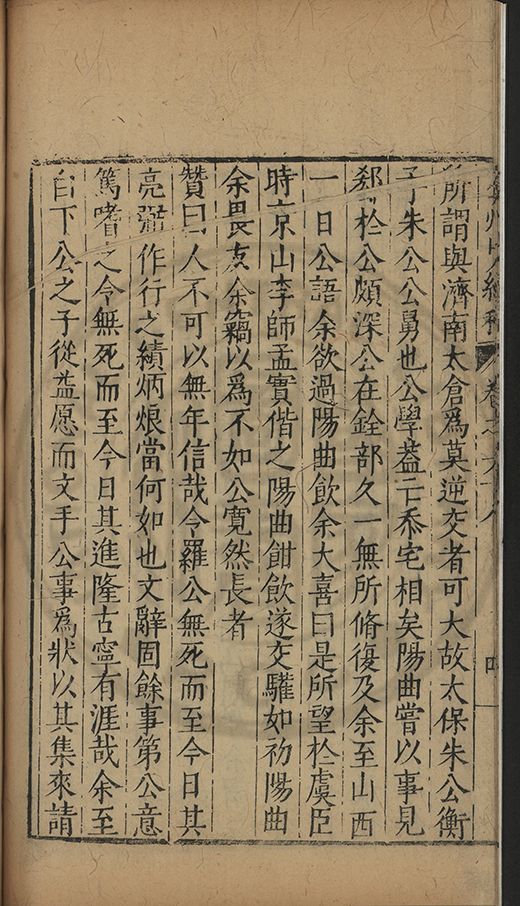 弇州山人續稿 卷之六十八 四
所謂與濟南太倉爲莫逆交者可大故太保朱公衡
子朱公公舅也公學益工忝宅相矣陽曲嘗以事見
郄於公頗深公在銓部久一無所脩復及余至山西
一日公語余欲過陽曲飲余大喜曰是所望於虞臣
時京山李師孟實偕之陽曲酣飲遂交驩如初陽曲
余畏友余竊以爲不如公寬然長者
贊曰人不可以無年信哉令羅公無死而至今日其
亮弼作行之績炳烺當何如也文辭固餘事第公意
篤嗜之令無死而至今日其進隆古寧有涯哉余至
白下公之子從益愿而文手公事爲狀以其集來請